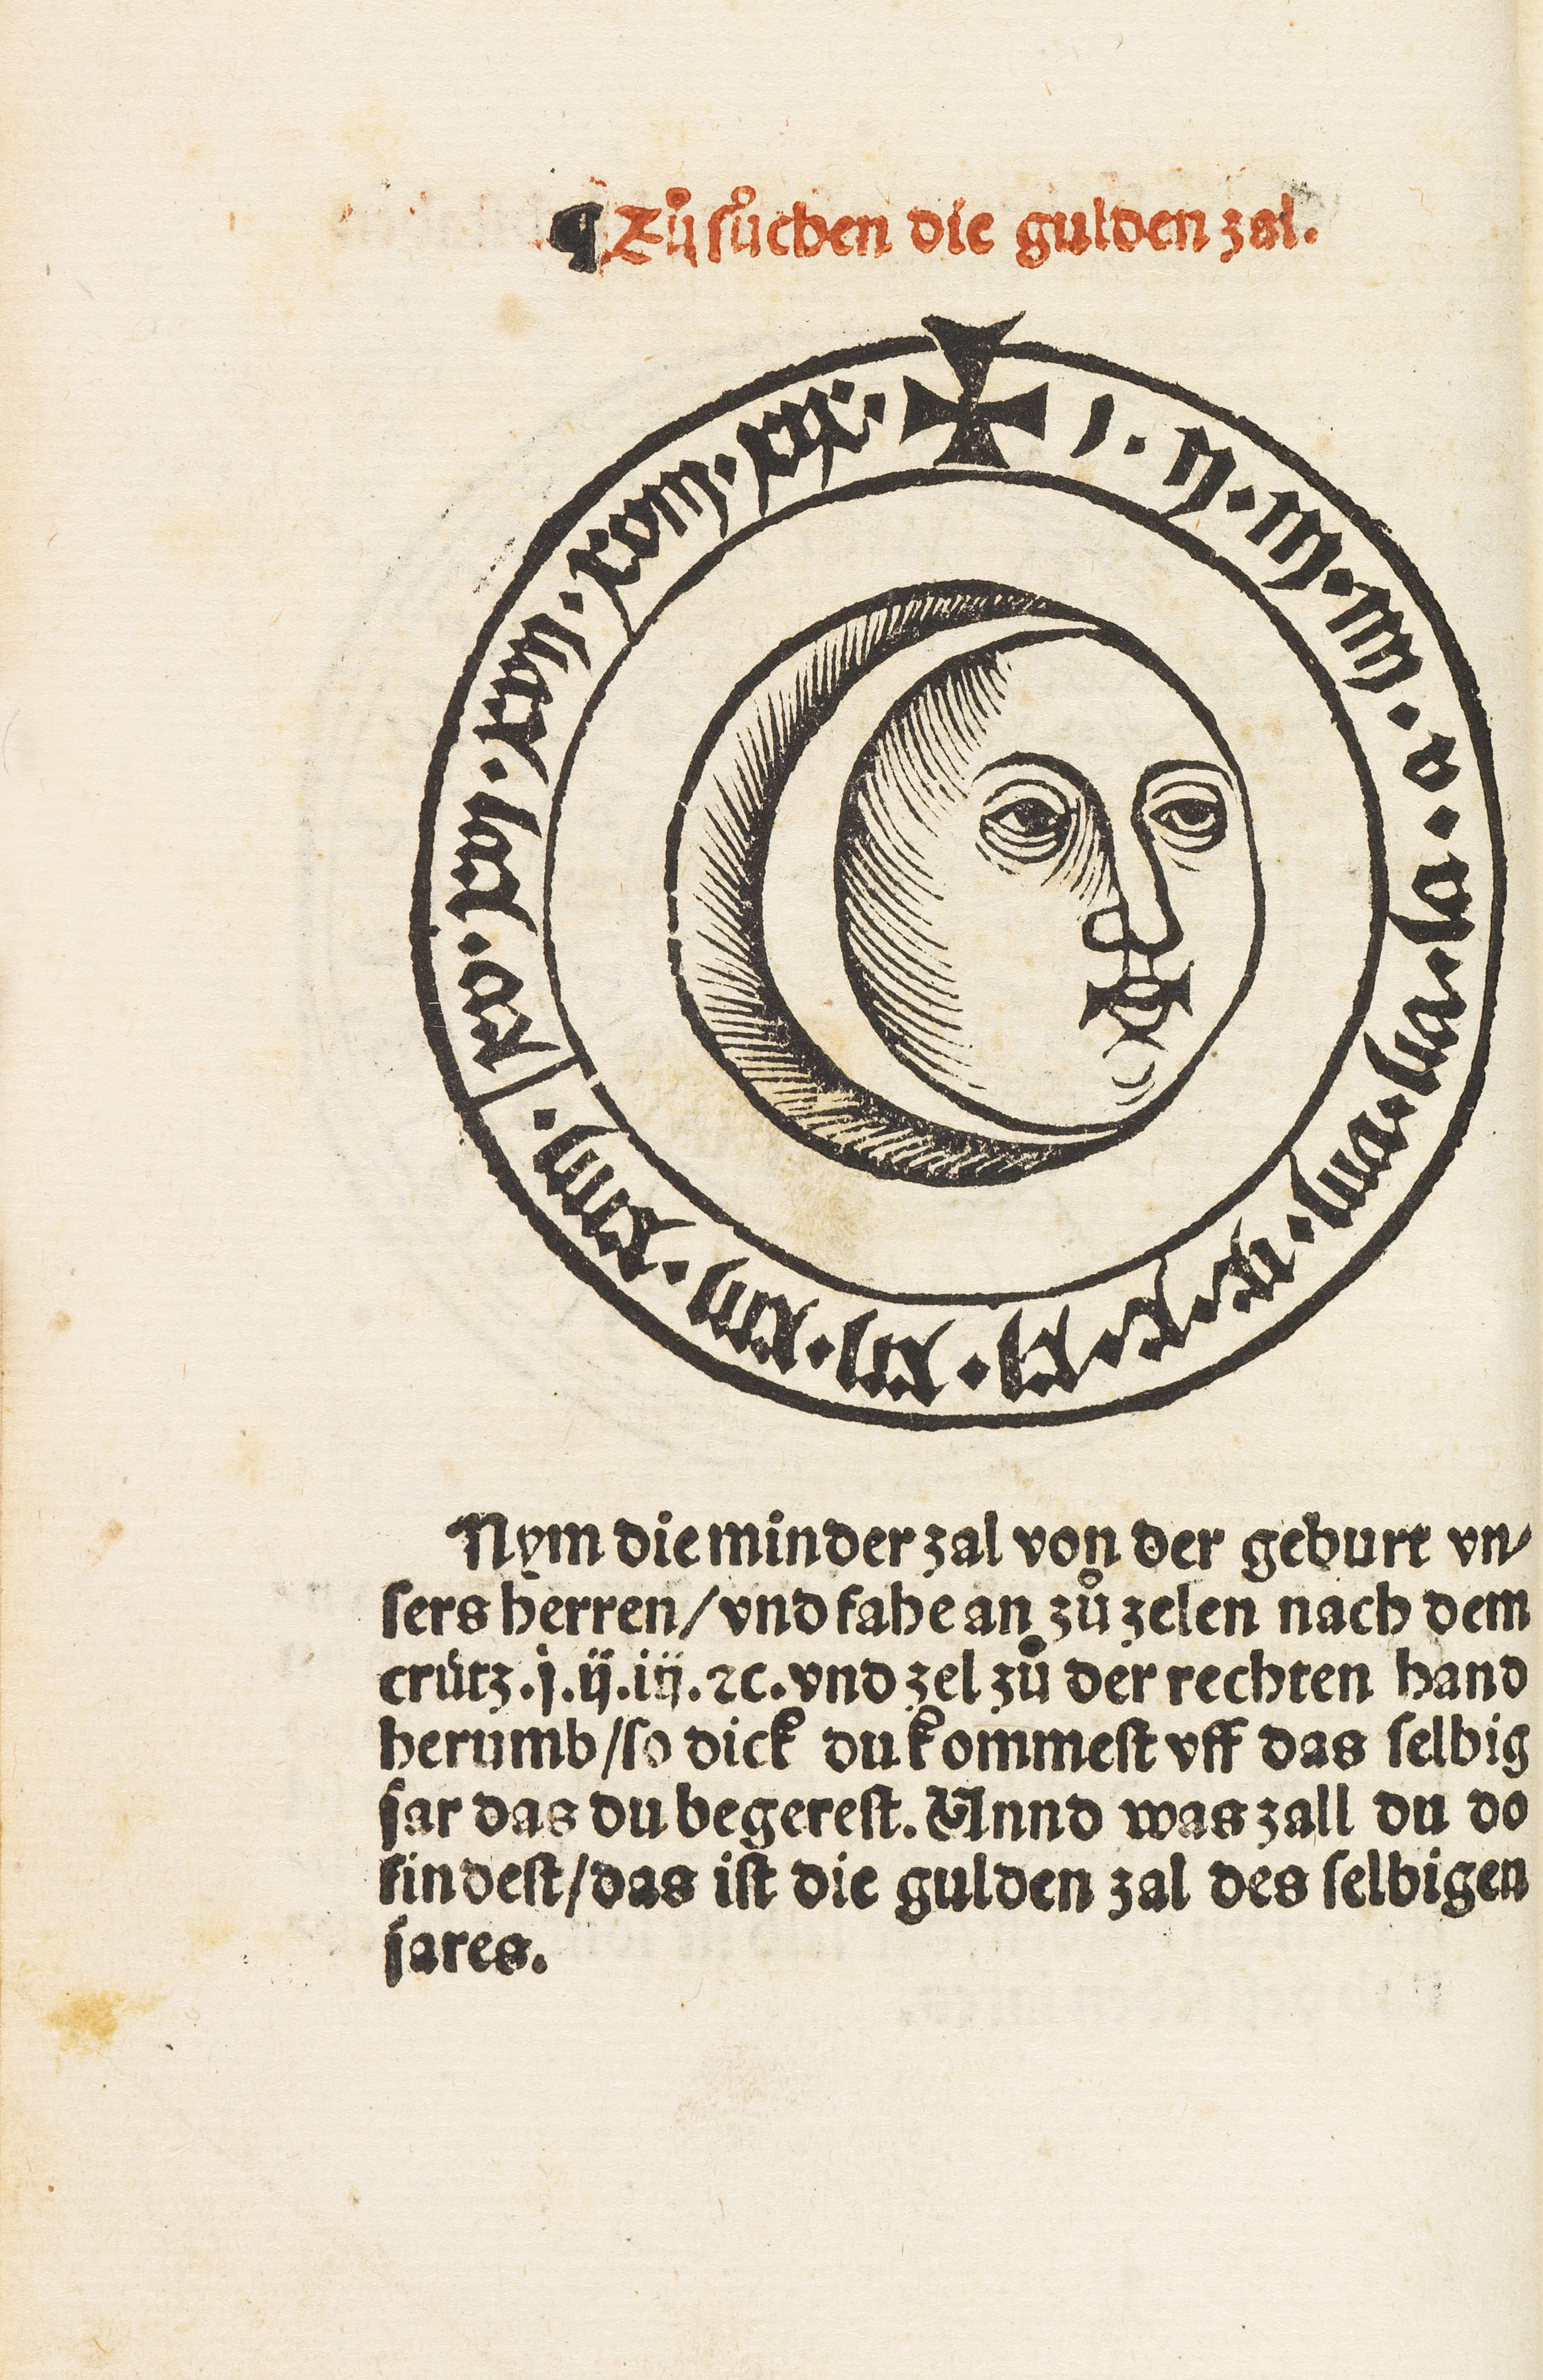 ¶ Zů sůchen die gulden zal.
j. ij. iij. iiij. v. vi. vij. viij. ix. x. xi. xij. xiij. xiiij. xv. xvi. xvij. xviij. xix.
Nym die minder zal von der geburt vn⸗
sers herren/ vnd fahe an zů zelen nach dem
crütz .j.ij.iij.⁊c. vnd zel zů der rechten hand
herumb/ so dick du kommest vff das selbig
jar das du begerest. Vnnd was zall du do
findest/ das ist die gulden zal des selbigen
jares.